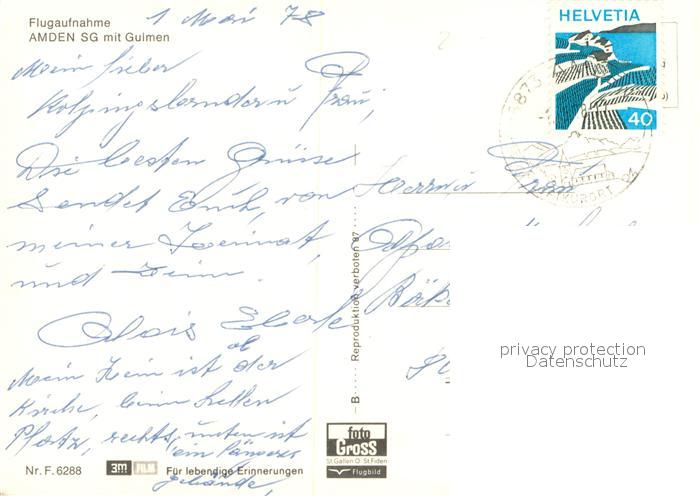 Flugaufnahme
AMDEN SG mit Gulmen
1 Mai 78
Mein lieber
Kolpingsbruder u Frau,
Die besten Grüsse
sendet Euch, von
meiner Heimat,
und Heim.
Alois
Mein Heim ist ob der
Kirche, beim hellen
Platz, rechts, unten ist
ein längeres
Gebäude,
Nr. F. 6288
3M FILM
Für lebendige Erinnerungen
— B ..... Reproduktion verboten 87 .....
foto
Gross
St. Gallen O St. Fiden
Flugbild
HELVETIA
40
8873
KURORT
Herrn u Frau
privacy protection
Datenschutz